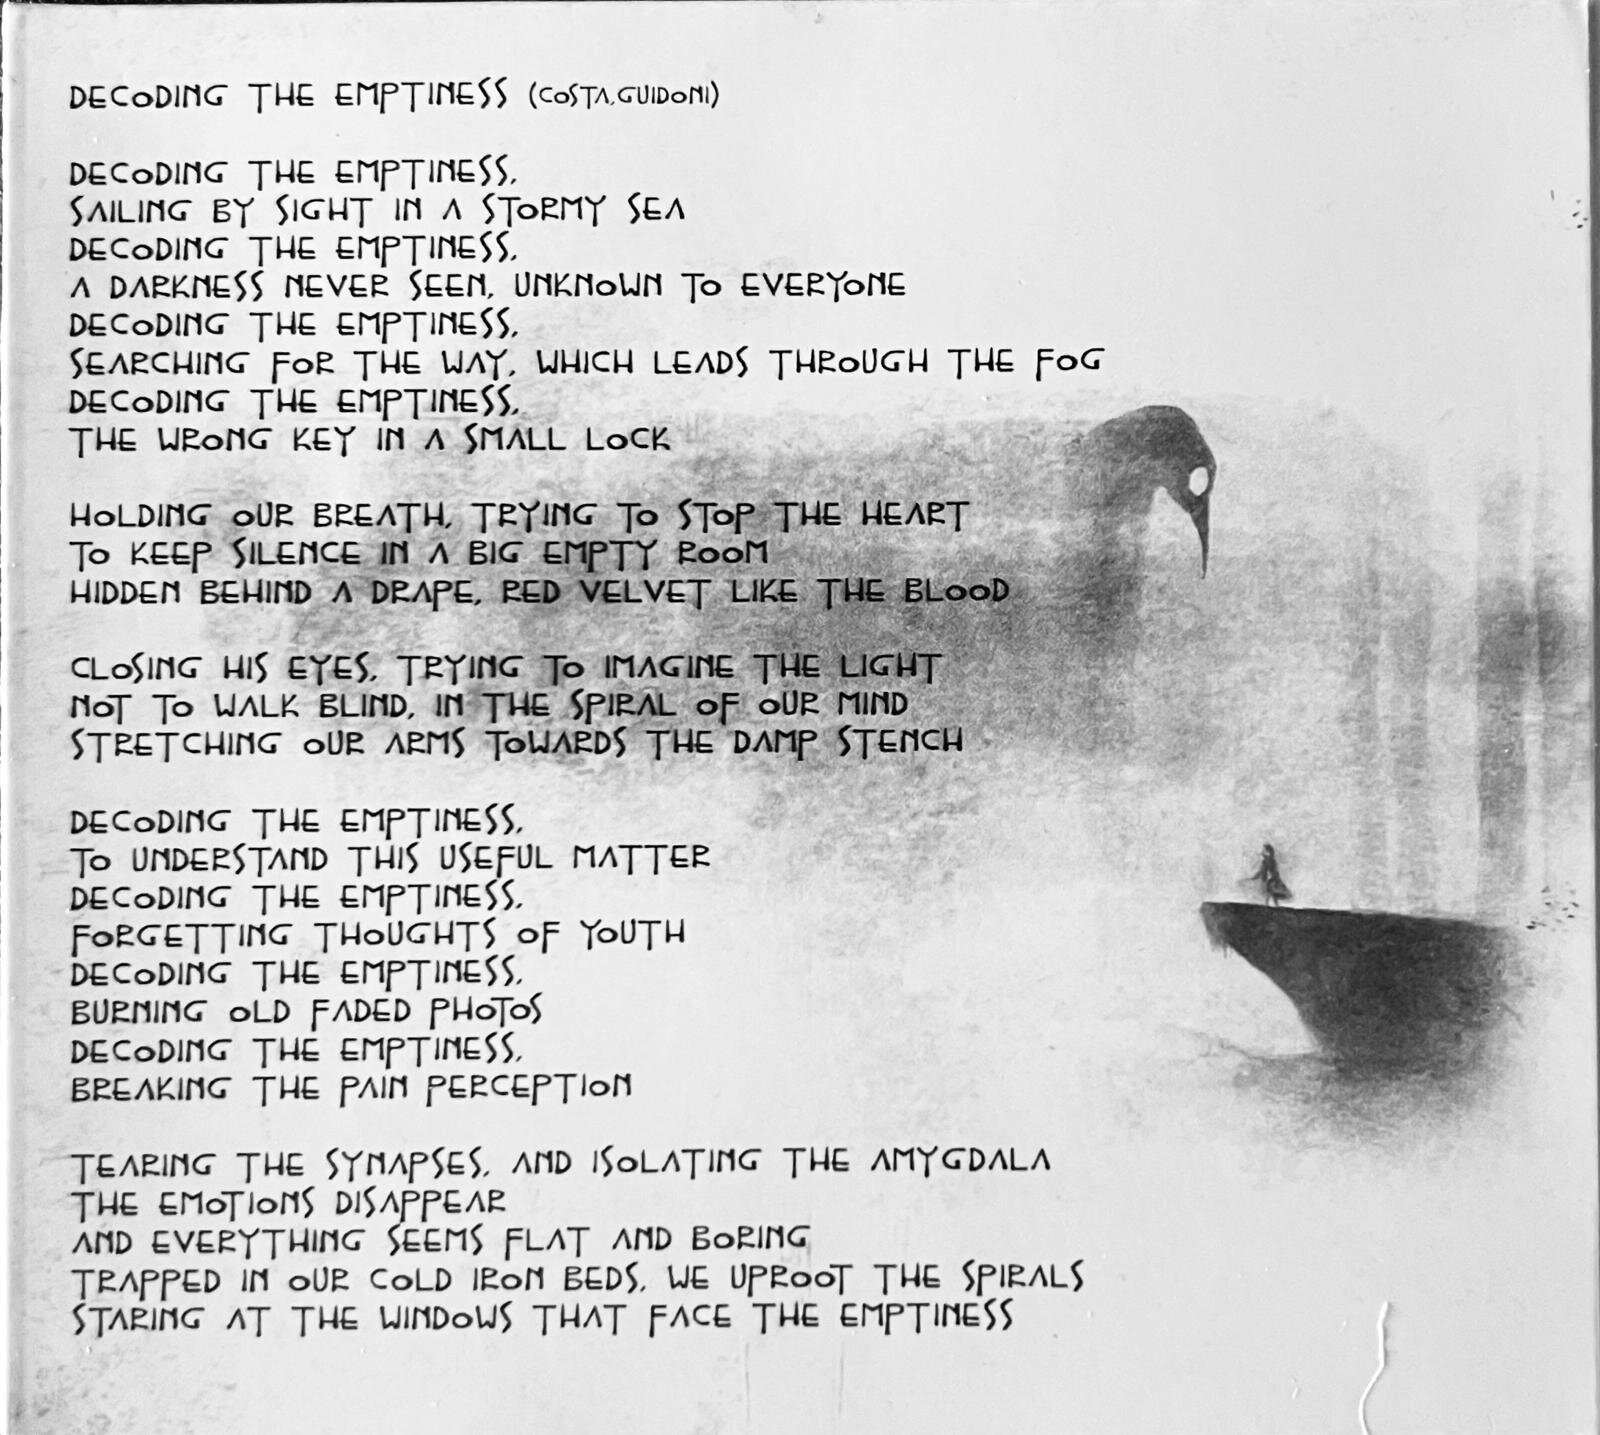 DECODING THE EMPTINESS (COSTA,GUIDONI)
DECODING THE EMPTINESS,
SAILING BY SIGHT IN A STORMY SEA
DECODING THE EMPTINESS,
A DARKNESS NEVER SEEN, UNKNOWN TO EVERYONE
DECODING THE EMPTINESS,
SEARCHING FOR THE WAY, WHICH LEADS THROUGH THE FOG
DECODING THE EMPTINESS,
THE WRONG KEY IN A SMALL LOCK
HOLDING OUR BREATH, TRYING TO STOP THE HEART
TO KEEP SILENCE IN A BIG EMPTY ROOM
HIDDEN BEHIND A DRAPE, RED VELVET LIKE THE BLOOD
CLOSING HIS EYES, TRYING TO IMAGINE THE LIGHT
NOT TO WALK BLIND, IN THE SPIRAL OF OUR MIND
STRETCHING OUR ARMS TOWARDS THE DAMP STENCH
DECODING THE EMPTINESS,
TO UNDERSTAND THIS USEFUL MATTER
DECODING THE EMPTINESS,
FORGETTING THOUGHTS OF YOUTH
DECODING THE EMPTINESS,
BURNING OLD FADED PHOTOS
DECODING THE EMPTINESS,
BREAKING THE PAIN PERCEPTION
TEARING THE SYNAPSES, AND ISOLATING THE AMYGDALA
THE EMOTIONS DISAPPEAR
AND EVERYTHING SEEMS FLAT AND BORING
TRAPPED IN OUR COLD IRON BEDS, WE UPROOT THE SPIRALS
STARING AT THE WINDOWS THAT FACE THE EMPTINESS